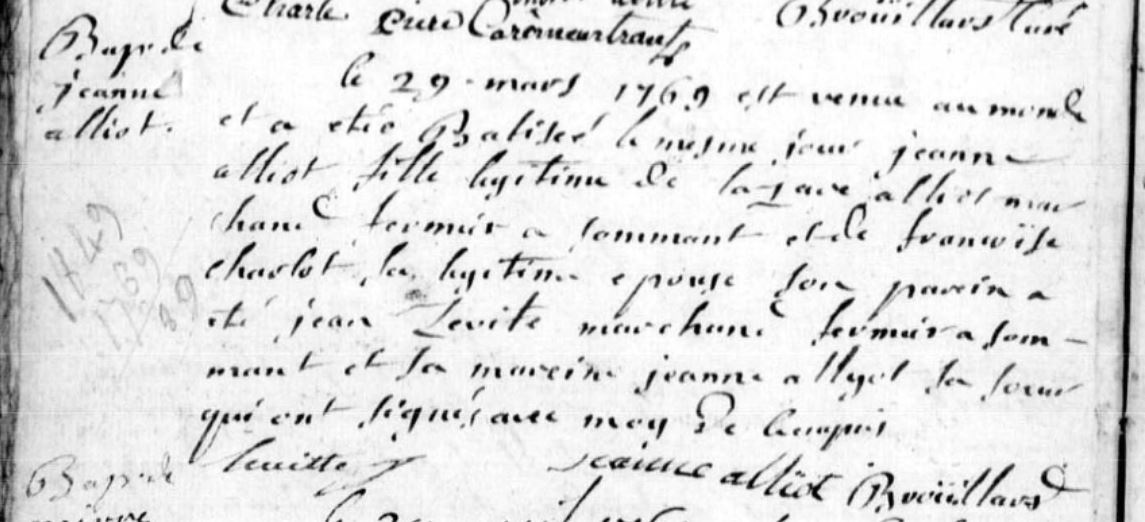 Charle Brouillard Curé
Bap. de
jeanne
alliot.
le 29 mars 1769 est venue au monde
et a etéé Batiseé le mesme jour jeanne
alliot fille legitime de lazare alliot mar
chand fermier a sommant et de francoise
charlot sa legitime epouse son parein a
eté jean Levite marchand fermier a som-
mant et sa mareine jeanne allyot sa soeur
qui ont signés avec moy De
Levitte jeanne alliot Brouillard
1769
69
Bap. de